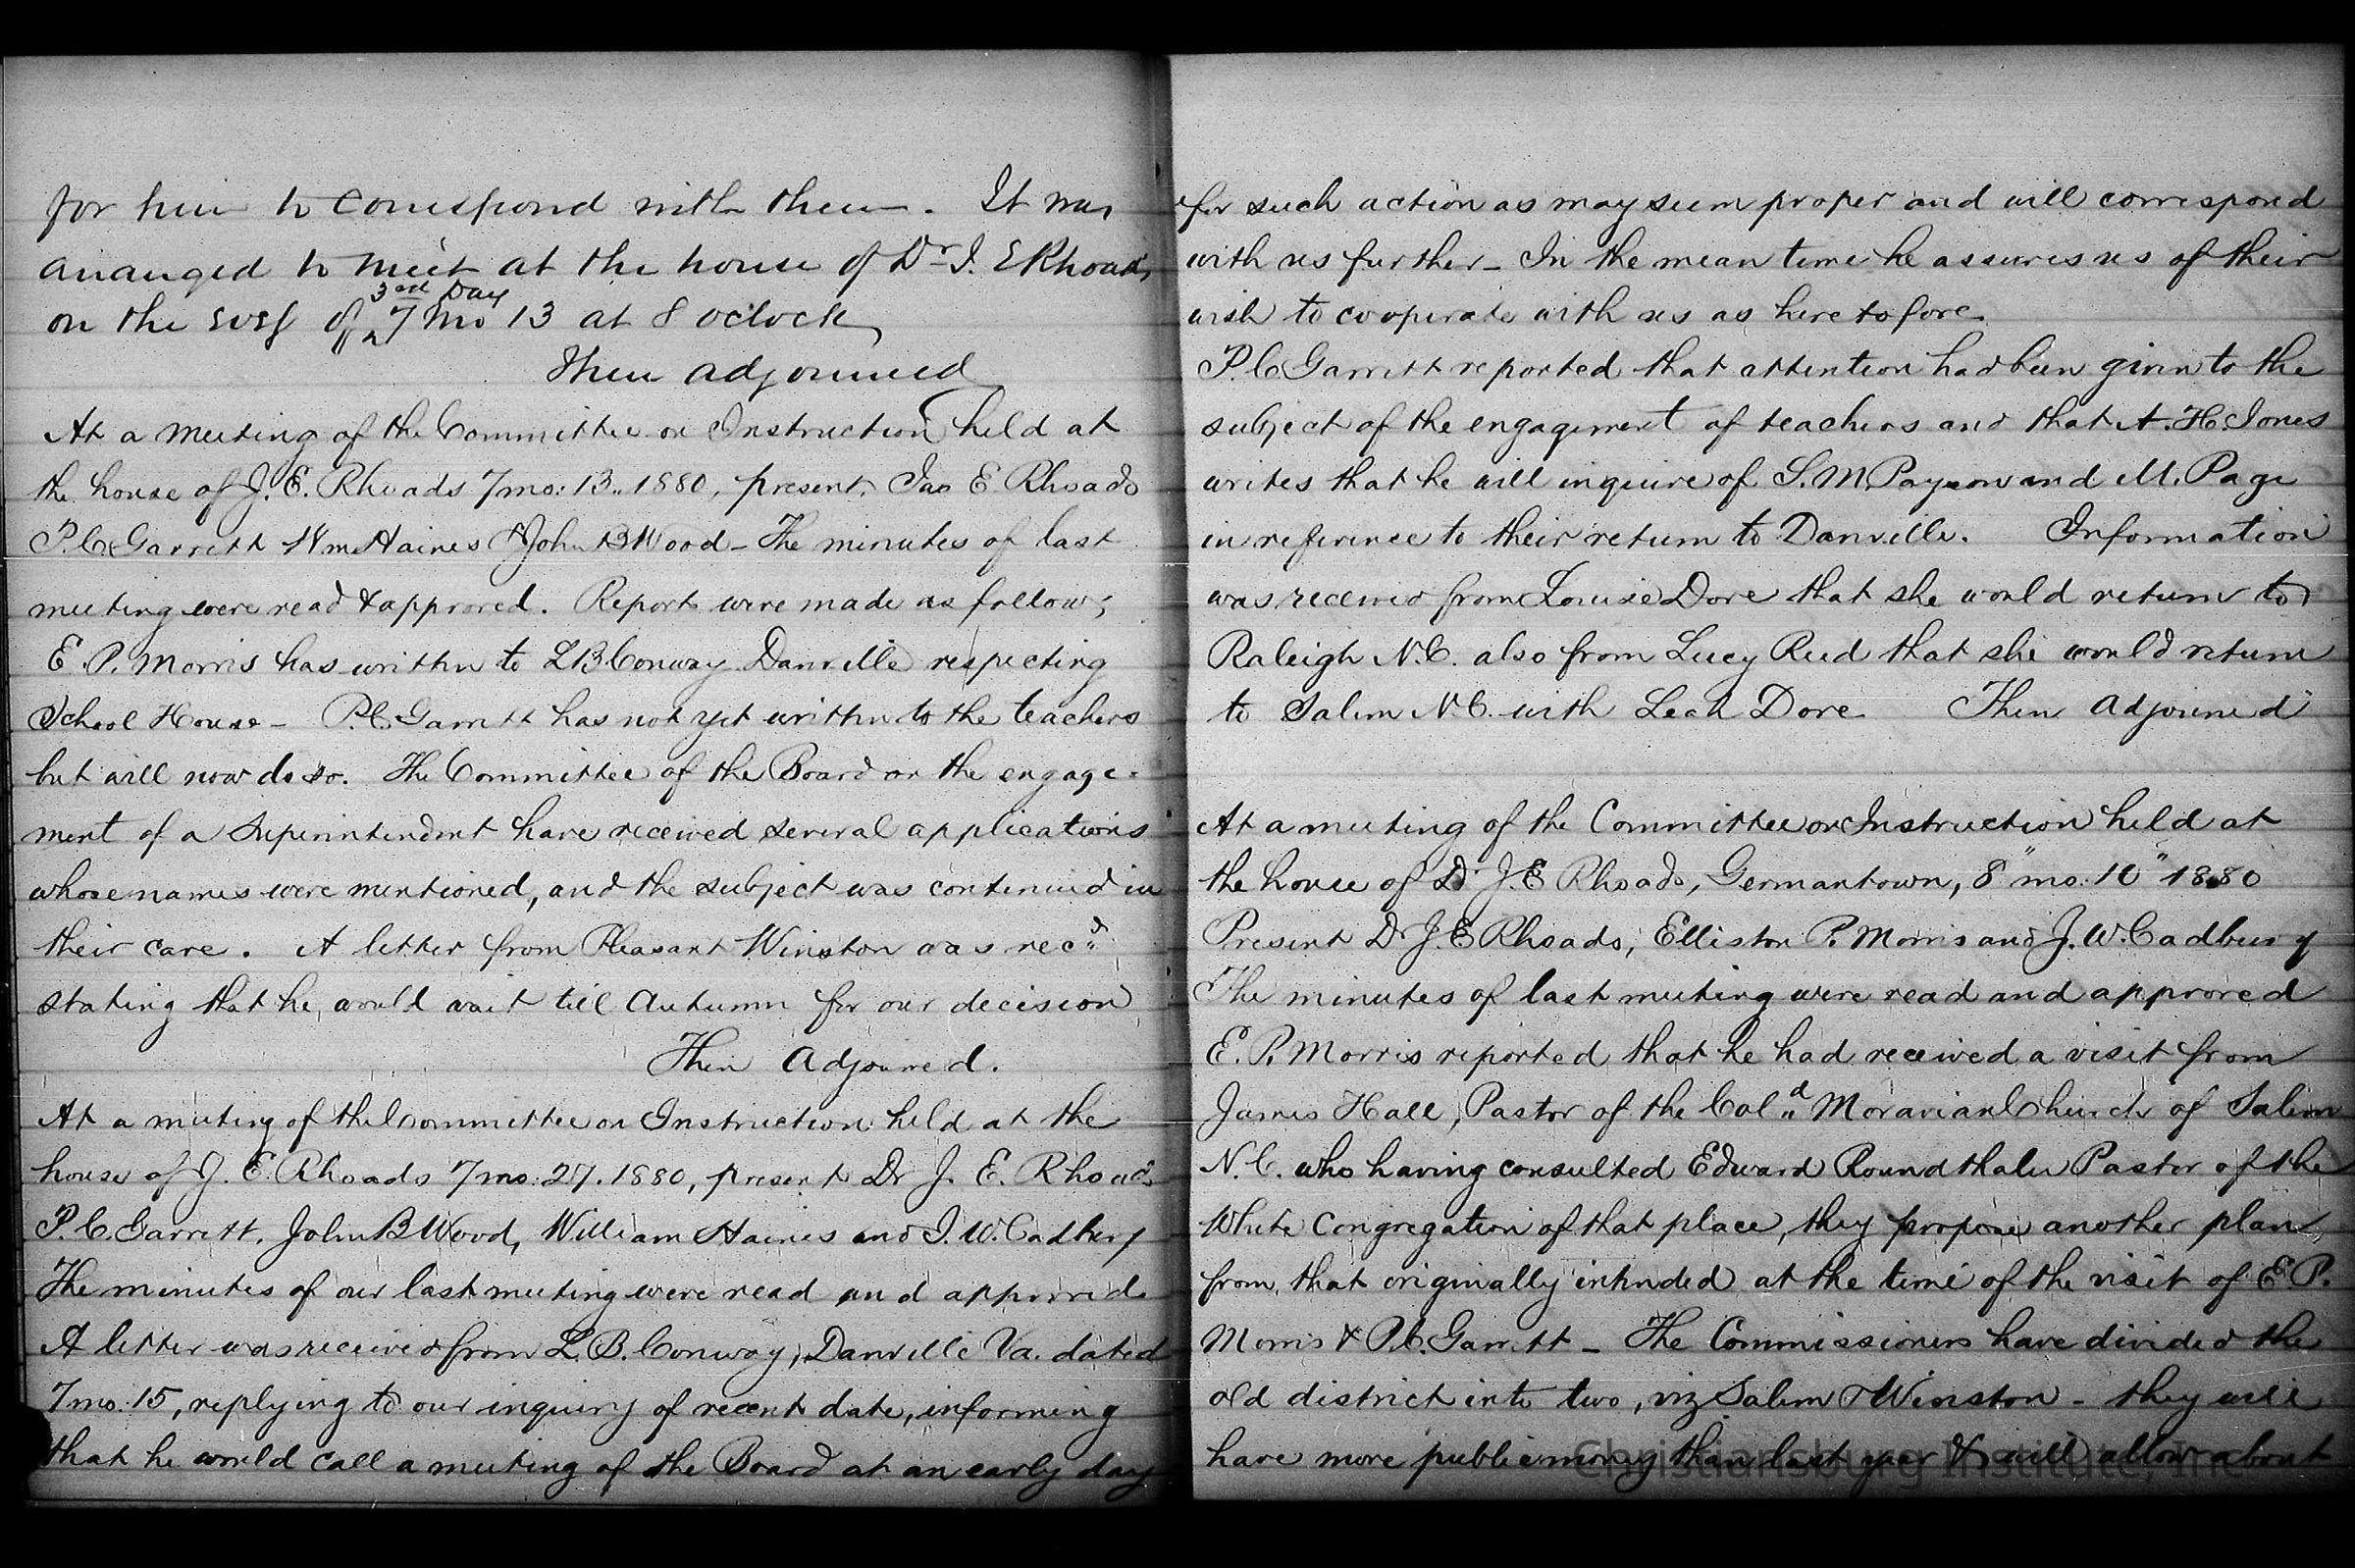 for him to correspond with them. It was
arranged to meet at the house of Dr J. E Rhoads
3rd Day
on the evg of 7 Mo 13 at 8 oclock
Then adjourned
At a meeting of the Committee on Instruction held at
the house of J. E. Rhoads 7mo: 13.. 1880, present, Jas E. Rhoads
P. C. Garrett Wm Haines & John B Wood – The minutes of last
meeting were read & approved. Reports were made as follows;
E. P. Morris has written to L B Conway Danville respecting
School House – P. C. Garrett has not yet written to the teachers
but will now do so. The Committee of the Board on the engage-
ment of a Superintendent have received several applications
whose names were mentioned, and the subject was continued in
their care. A letter from Pleasant Winston was recd
stating that he would wait till Autumn for our decision
Then Adjourned.
At a meeting of the Committee on Instruction held at the
house of J. E. Rhoads 7mo: 27. 1880, present Dr J. E. Rhoads
P. C. Garrett, John B Wood, William Haines and J. W. Cadbury
The minutes of our last meeting were read and approved
A letter was received from L. B. Conway, Danville Va. dated
7mo: 15, replying to our inquiry of recent date, informing
that he would call a meeting of the Board at an early day
for such action as may seem proper and will correspond
with us further – In the mean time he assures us of their
wish to cooperate with us as heretofore
P. C Garrett reported that attention had been given to the
subject of the engagement of teachers and that A. H. Jones
writes that he will inquire of S. M. Payson and M. Page
in reference to their return to Danville. Information
was received from Louise Dore that she would return to
Raleigh N. C. also from Lucy Reed that she would return
to Salem N. C. with Leah Dore Then Adjourned
At a meeting of the Committee on Instruction held at
the house of Dr J. E Rhoads, Germantown, 8" mo: 10" 1880
Present Dr J. E Rhoads, Elliston P. Morris and J. W. Cadbury
The minutes of last meeting were read and approved
E. P. Morris reported that he had received a visit from
James Hall, Pastor of the Cold Moravian Church of Salem
N. C. who having consulted Edward Roundthaler Pastor of the
White Congregation of that place, they propose another plan
from that originally intended at the time of the visit of E. P.
Morris & P. C. Garrett – The Commissioners have divided the
old district into two, viz Salem & Winston – they will
have more public money than last year & will allow about
Christiansburg Institute, Inc